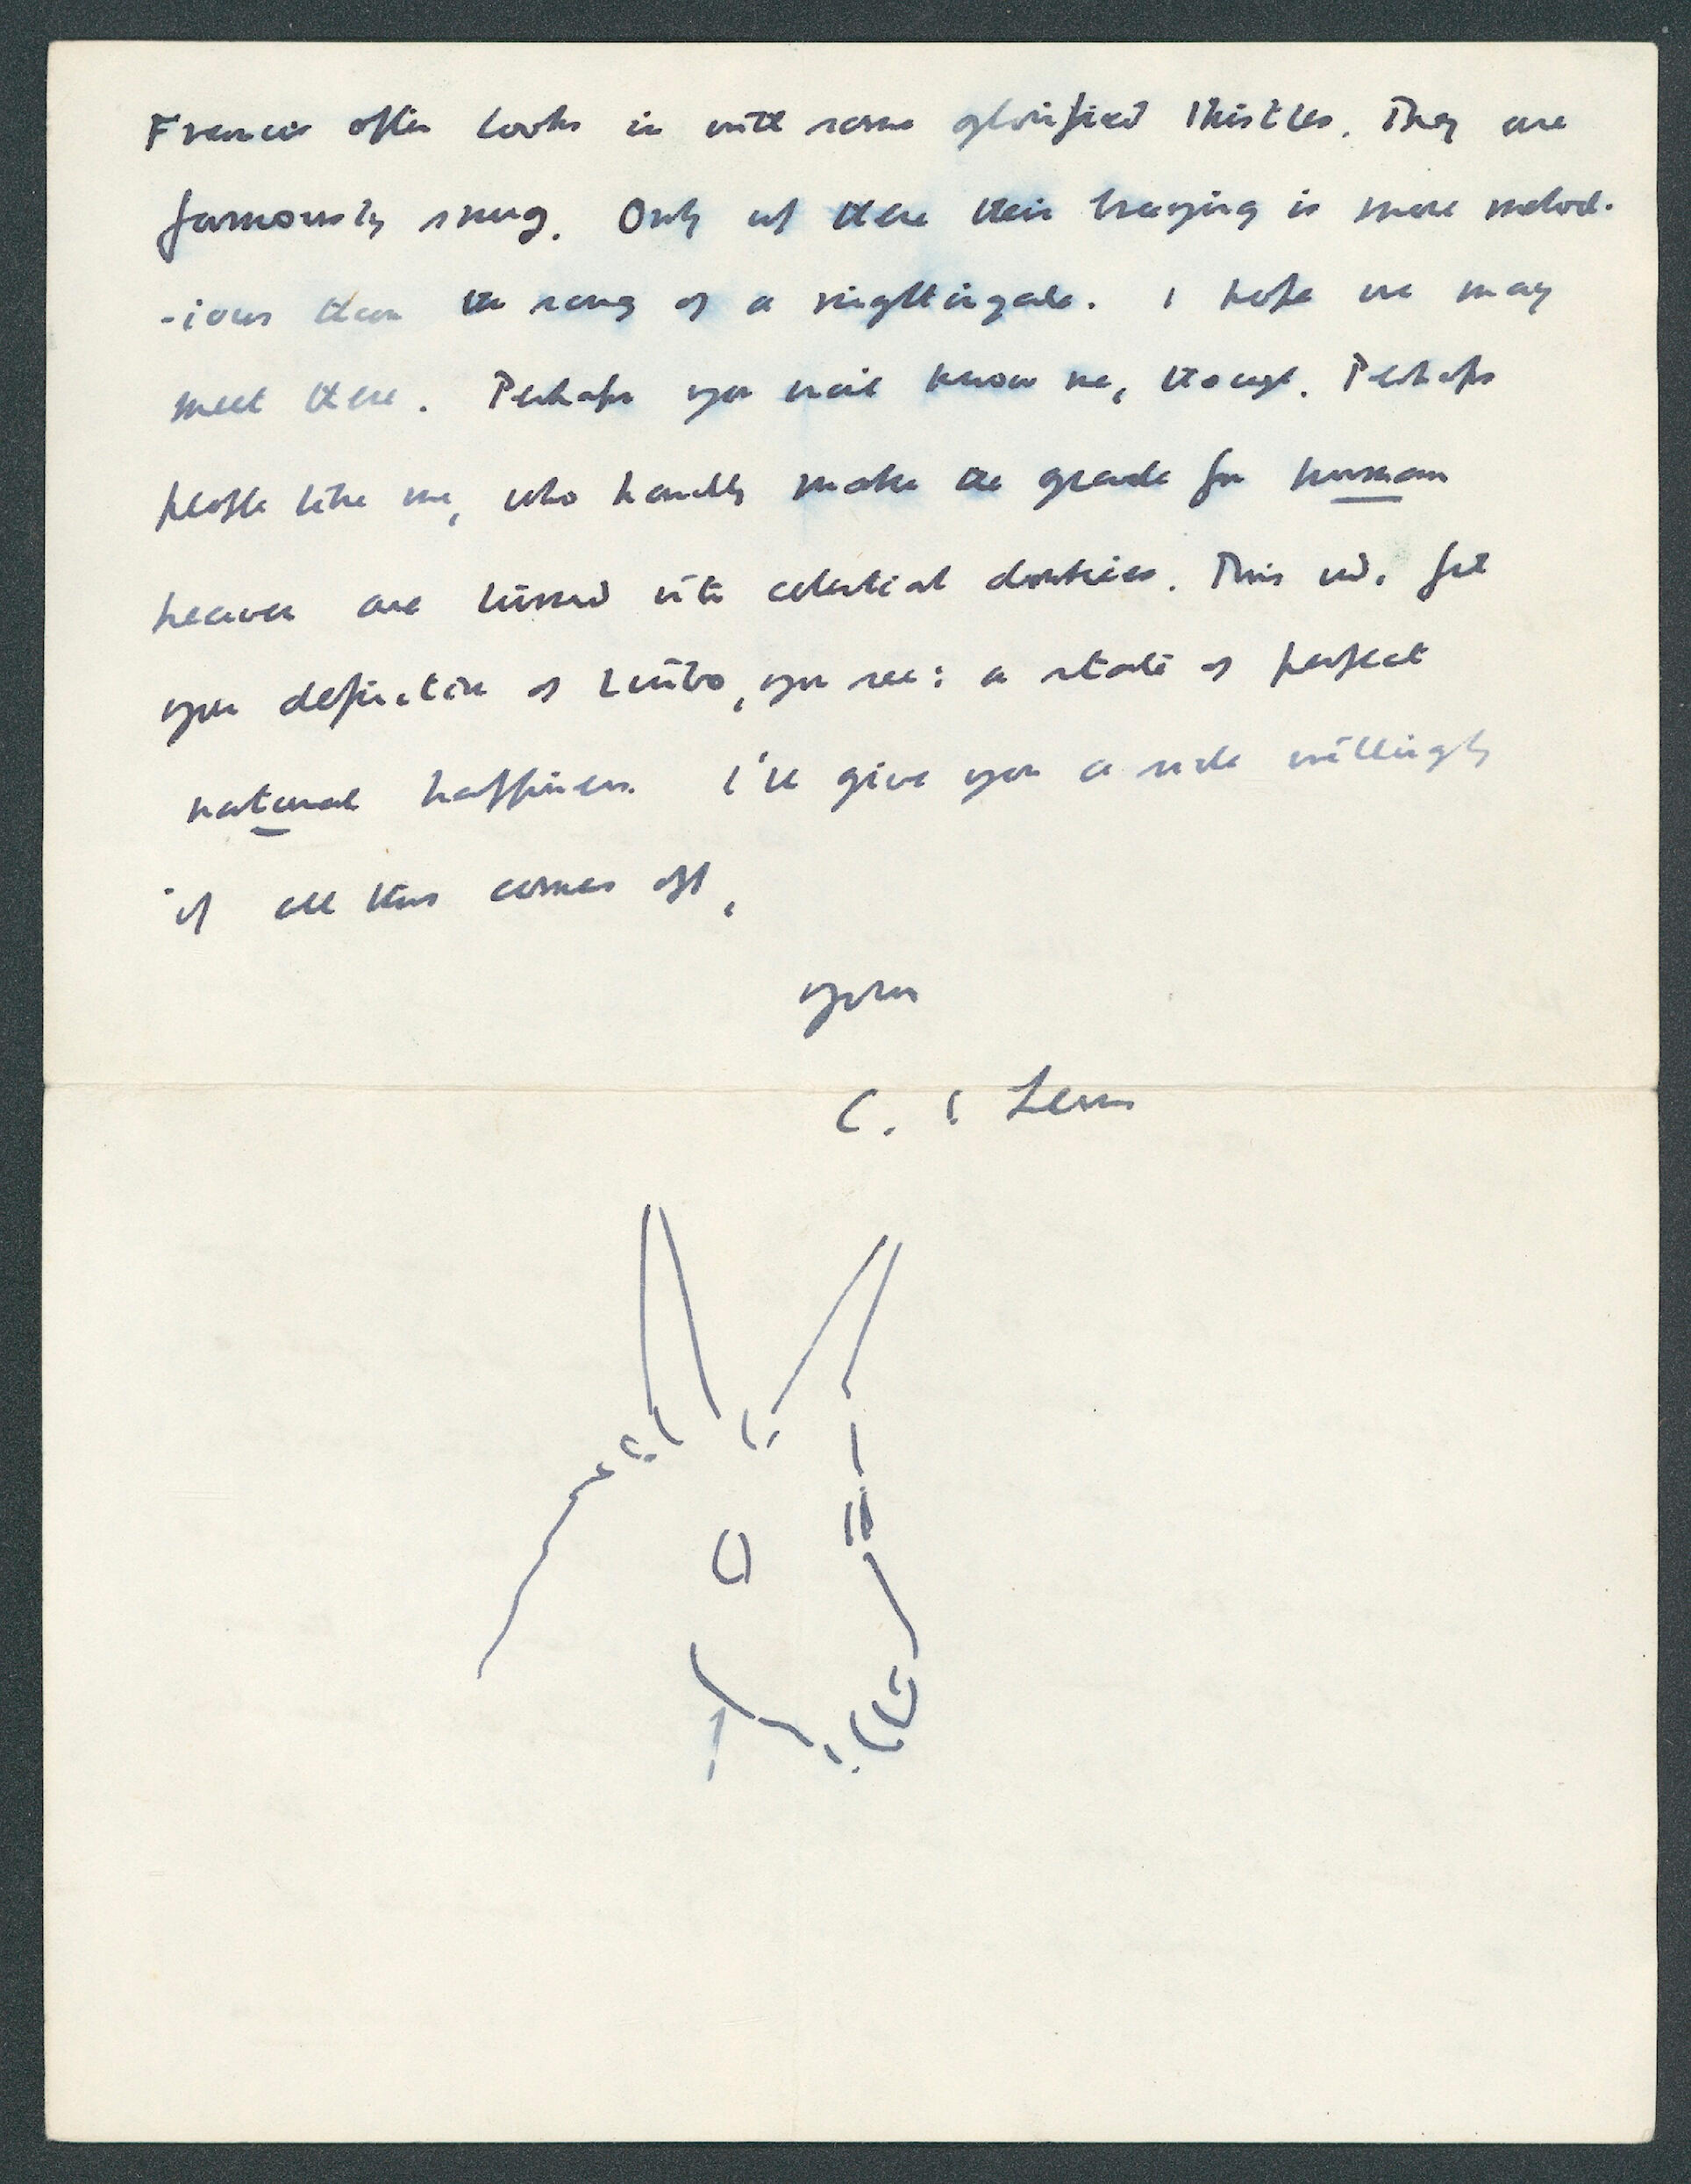 Francis often looks in with some glorified thistles. They are
famously snug. Only up there their braying is more melod-
-ious than the song of a nightingale. I hope we may
meet there. Perhaps you will know me, though. Perhaps
people like me, who hardly make the grade for human
heaven are turned into celestial donkies. This wd. fit
your definition of Limbo, you see: a state of perfect
natural happiness. I'll give you a ride willingly
if all this comes off,
yours
C. S. Lewis